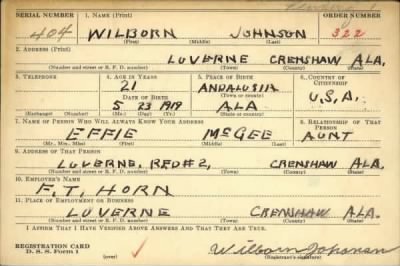 SERIAL NUMBER 1. NAME (Print) ORDER NUMBER
404 WILBORN JOHNSON 322
(First) (Middle) (Last)
2. ADDRESS (Print)
LUVERNE CRENSHAW ALA.
(Number and street or R. F. D. number) (Town) (County) (State)
3. TELEPHONE 4. AGE IN YEARS 5. PLACE OF BIRTH 6. COUNTRY OF CITIZENSHIP
21 ANDALUSIA
DATE OF BIRTH (Town or county)
5 23 1919 ALA U.S.A.
(Exchange) (Number) (Mo.) (Day) (Yr.) (State or country)
7. NAME OF PERSON WHO WILL ALWAYS KNOW YOUR ADDRESS 8. RELATIONSHIP OF THAT PERSON
EFFIE McGEE AUNT
(Mr., Mrs., Miss) (First) (Middle) (Last)
9. ADDRESS OF THAT PERSON
LUVERNE, RFD#2, CRENSHAW ALA.
(Number and street or R. F. D. number) (Town) (County) (State)
10. EMPLOYER'S NAME
F.T. HORN
11. PLACE OF EMPLOYMENT OR BUSINESS
LUVERNE CRENSHAW ALA.
(Number and street or R. F. D. number) (Town) (County) (State)
I AFFIRM THAT I HAVE VERIFIED ABOVE ANSWERS AND THAT THEY ARE TRUE.
REGISTRATION CARD
D. S. S. Form 1 (over) Wilborn Johnson